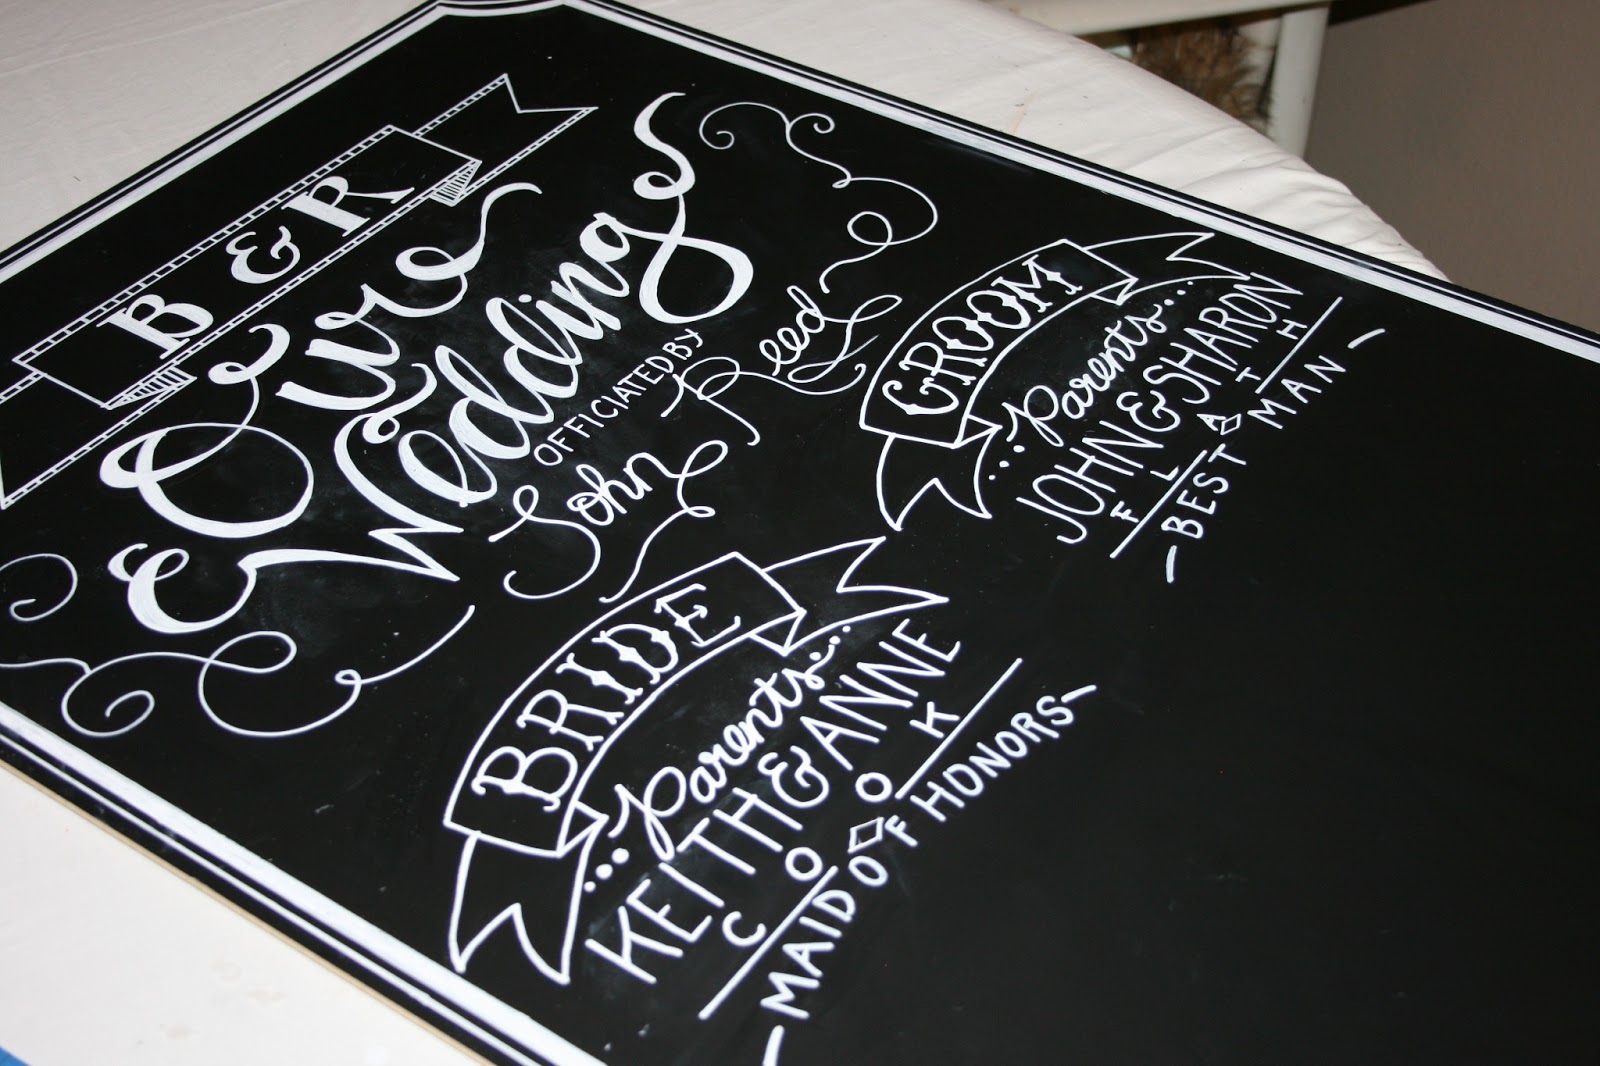 B & R
Our
Wedding
OFFICIATED BY
John Reed
BRIDE
...Parents...
KEITH & ANNE
COOK
-MAID OF HONORS-
GROOM
...Parents...
JOHN & SHARON
FLATH
-BEST MAN-